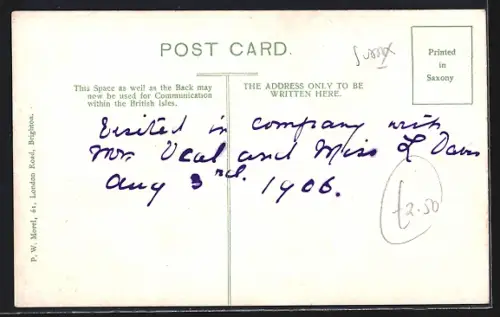 POST CARD.
Sussex
Printed
in
Saxony
This Space as well as the Back may
now be used for Communication
within the British Isles.
THE ADDRESS ONLY TO BE
WRITTEN HERE.
Visited in company with
Mr. Veal and Miss L Davis
Aug 3rd. 1906.
£2.50
P. W. Morel, 41, London Road, Brighton.